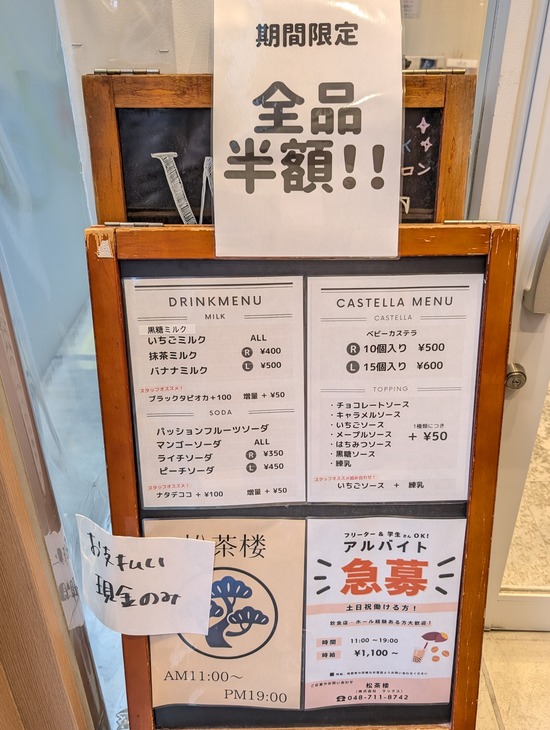 期間限定
全品
半額!!
ロン
DRINKMENU
MILK
黒糖ミルク
いちごミルク
抹茶ミルク
バナナミルク
ALL
R ¥400
L ¥500
スタッフオススメ!
ブラックタピオカ+100 増量 + ¥50
SODA
パッションフルーツソーダ
マンゴーソーダ
ライチソーダ
ピーチソーダ
ALL
R ¥350
L ¥450
スタッフオススメ!
ナタデココ + ¥100 増量 + ¥50
CASTELLA MENU
CASTELLA
ベビーカステラ
R 10個入り ¥500
L 15個入り ¥600
TOPPING
・チョコレートソース
・キャラメルソース
・いちごソース
・メープルソース
・はちみつソース
・黒糖ソース
・練乳
1種類につき
+ ¥50
スタッフオススメ組み合わせ!
いちごソース + 練乳
お支払い
現金のみ
松茶楼
AM11:00〜
PM19:00
フリーター & 学生さんOK!
アルバイト
急募
土日祝働ける方!
飲食店・ホール経験ある方大歓迎!
時間 11:00〜19:00
時給 ¥1,100〜
松茶楼
☎048-711-8742